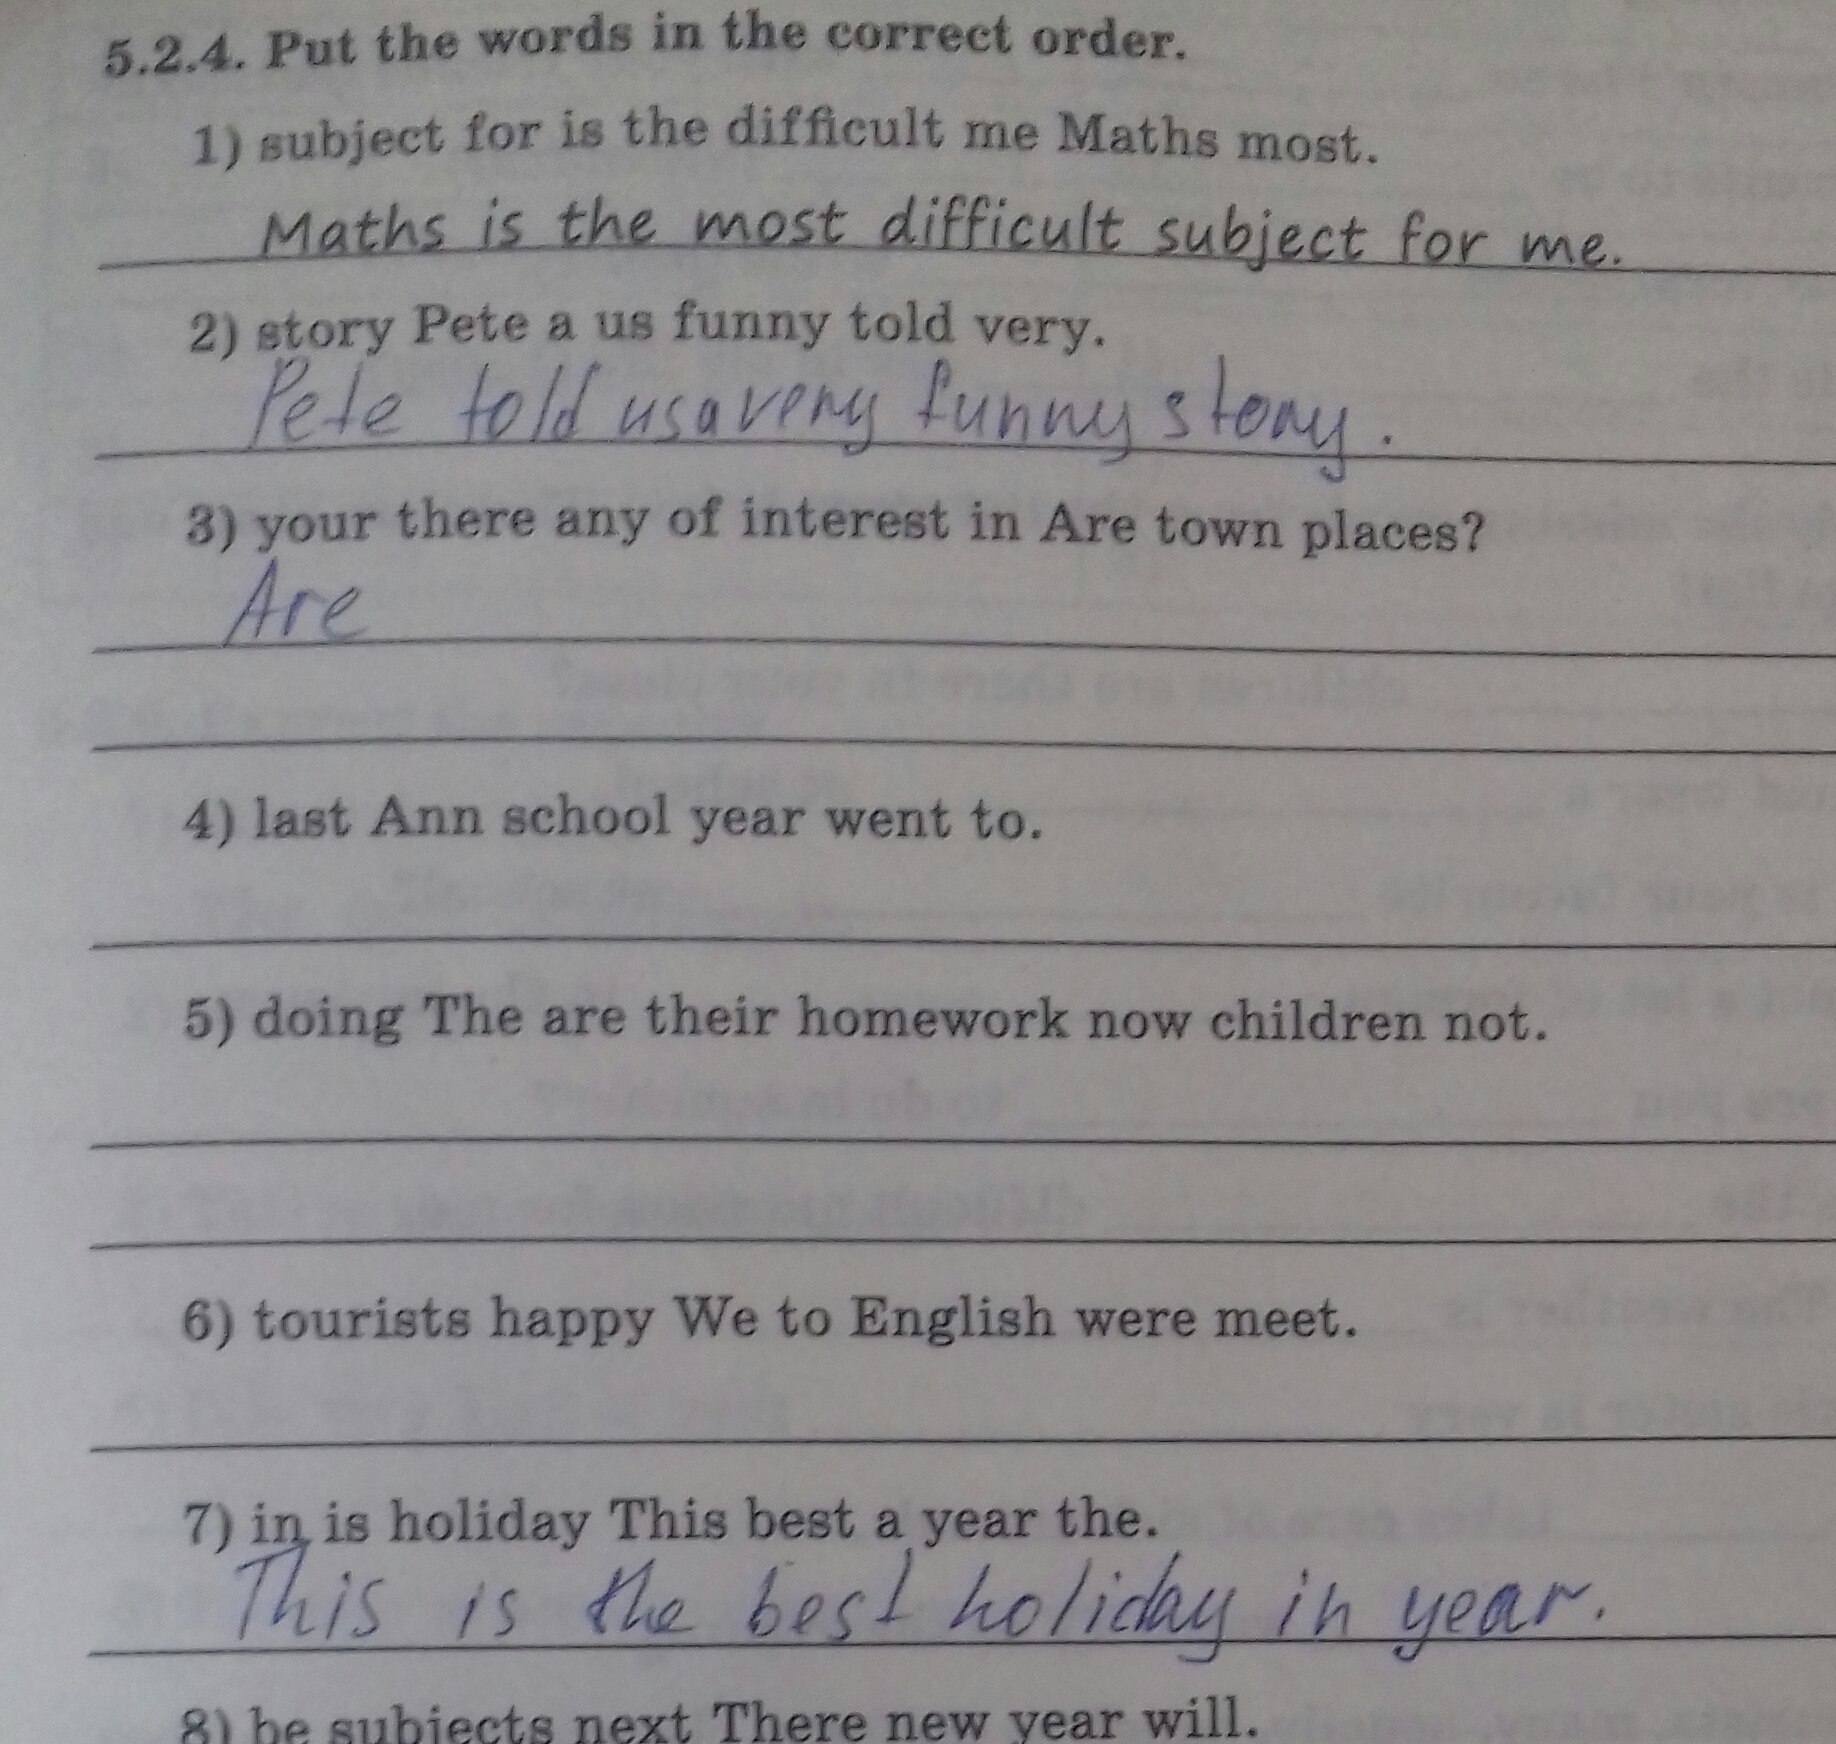 5.2.4. Put the words in the correct order.
1) subject for is the difficult me Maths most.
Maths is the most difficult subject for me.
2) story Pete a us funny told very.
Pete told us a very funny story.
3) your there any of interest in Are town places?
Are
4) last Ann school year went to.
5) doing The are their homework now children not.
6) tourists happy We to English were meet.
7) in is holiday This best a year the.
This is the best holiday in year.
8) be subjects next There new year will.